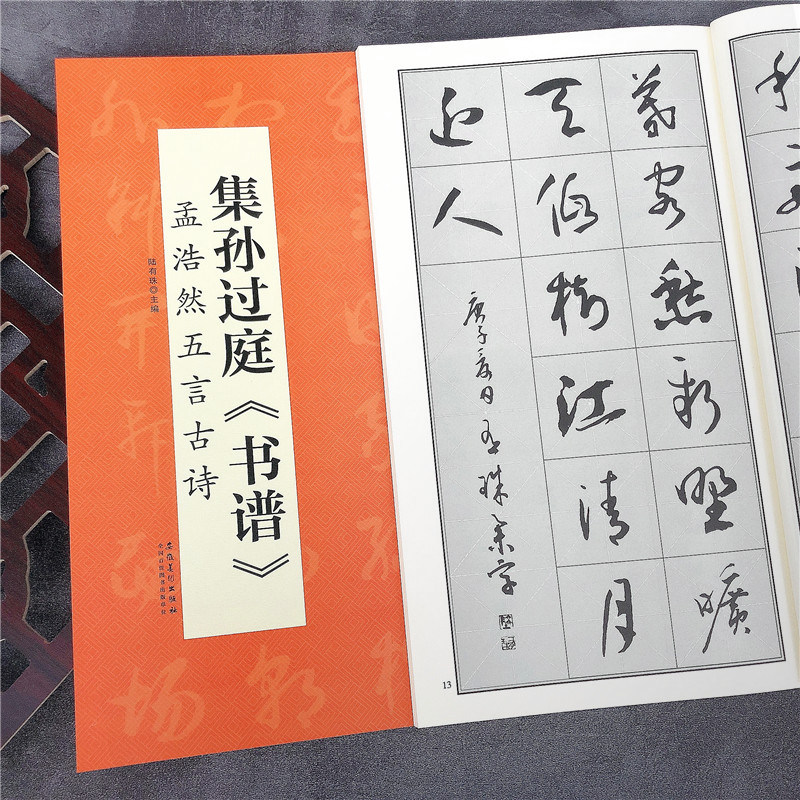 集孙过庭《书谱》
孟浩然五言古诗
陆有珠◎主编
安徽美术出版社
全国百佳图书出版单位
暮客愁新野曠
天低樹江清月
近人
庚子夏日有珠集字
13